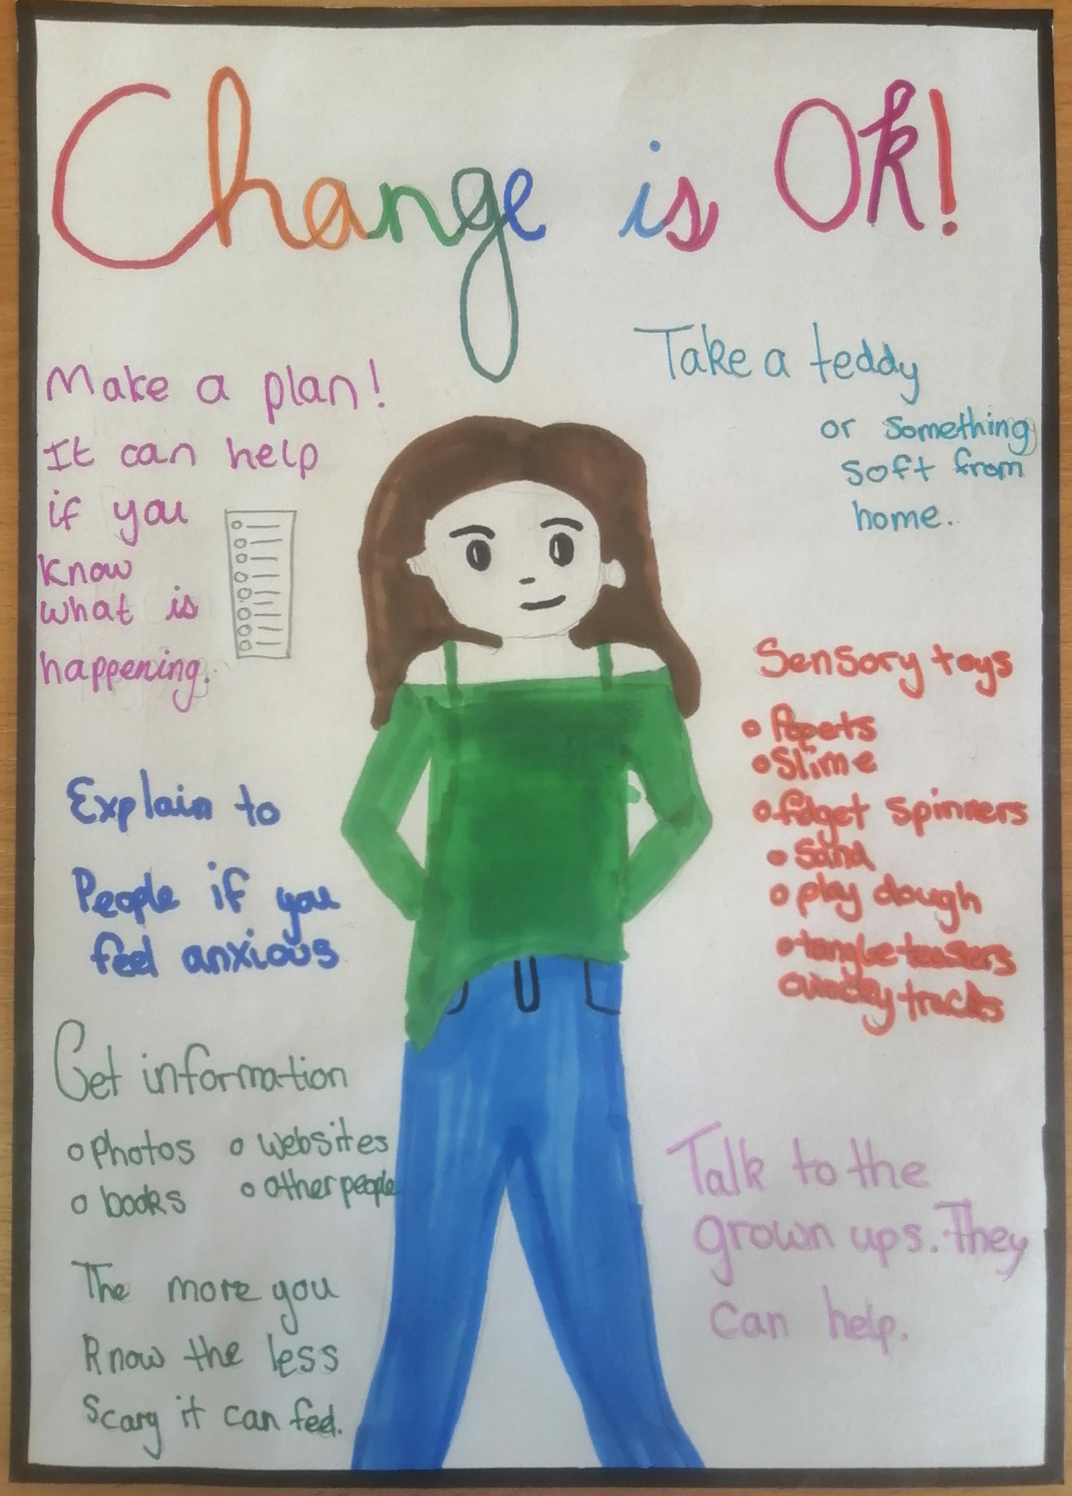 Change is Ok!
Make a plan!
It can help
if you
know
what is
happening.
Take a teddy
or something
soft from
home.
Sensory toys
Popets
Slime
fidget spinners
Sand
play dough
tangle teasers
wacky tracks
Explain to
People if you
feel anxious
Get information
photos
websites
books
other people
The more you
know the less
Scary it can feel.
Talk to the
grown ups. They
can help.